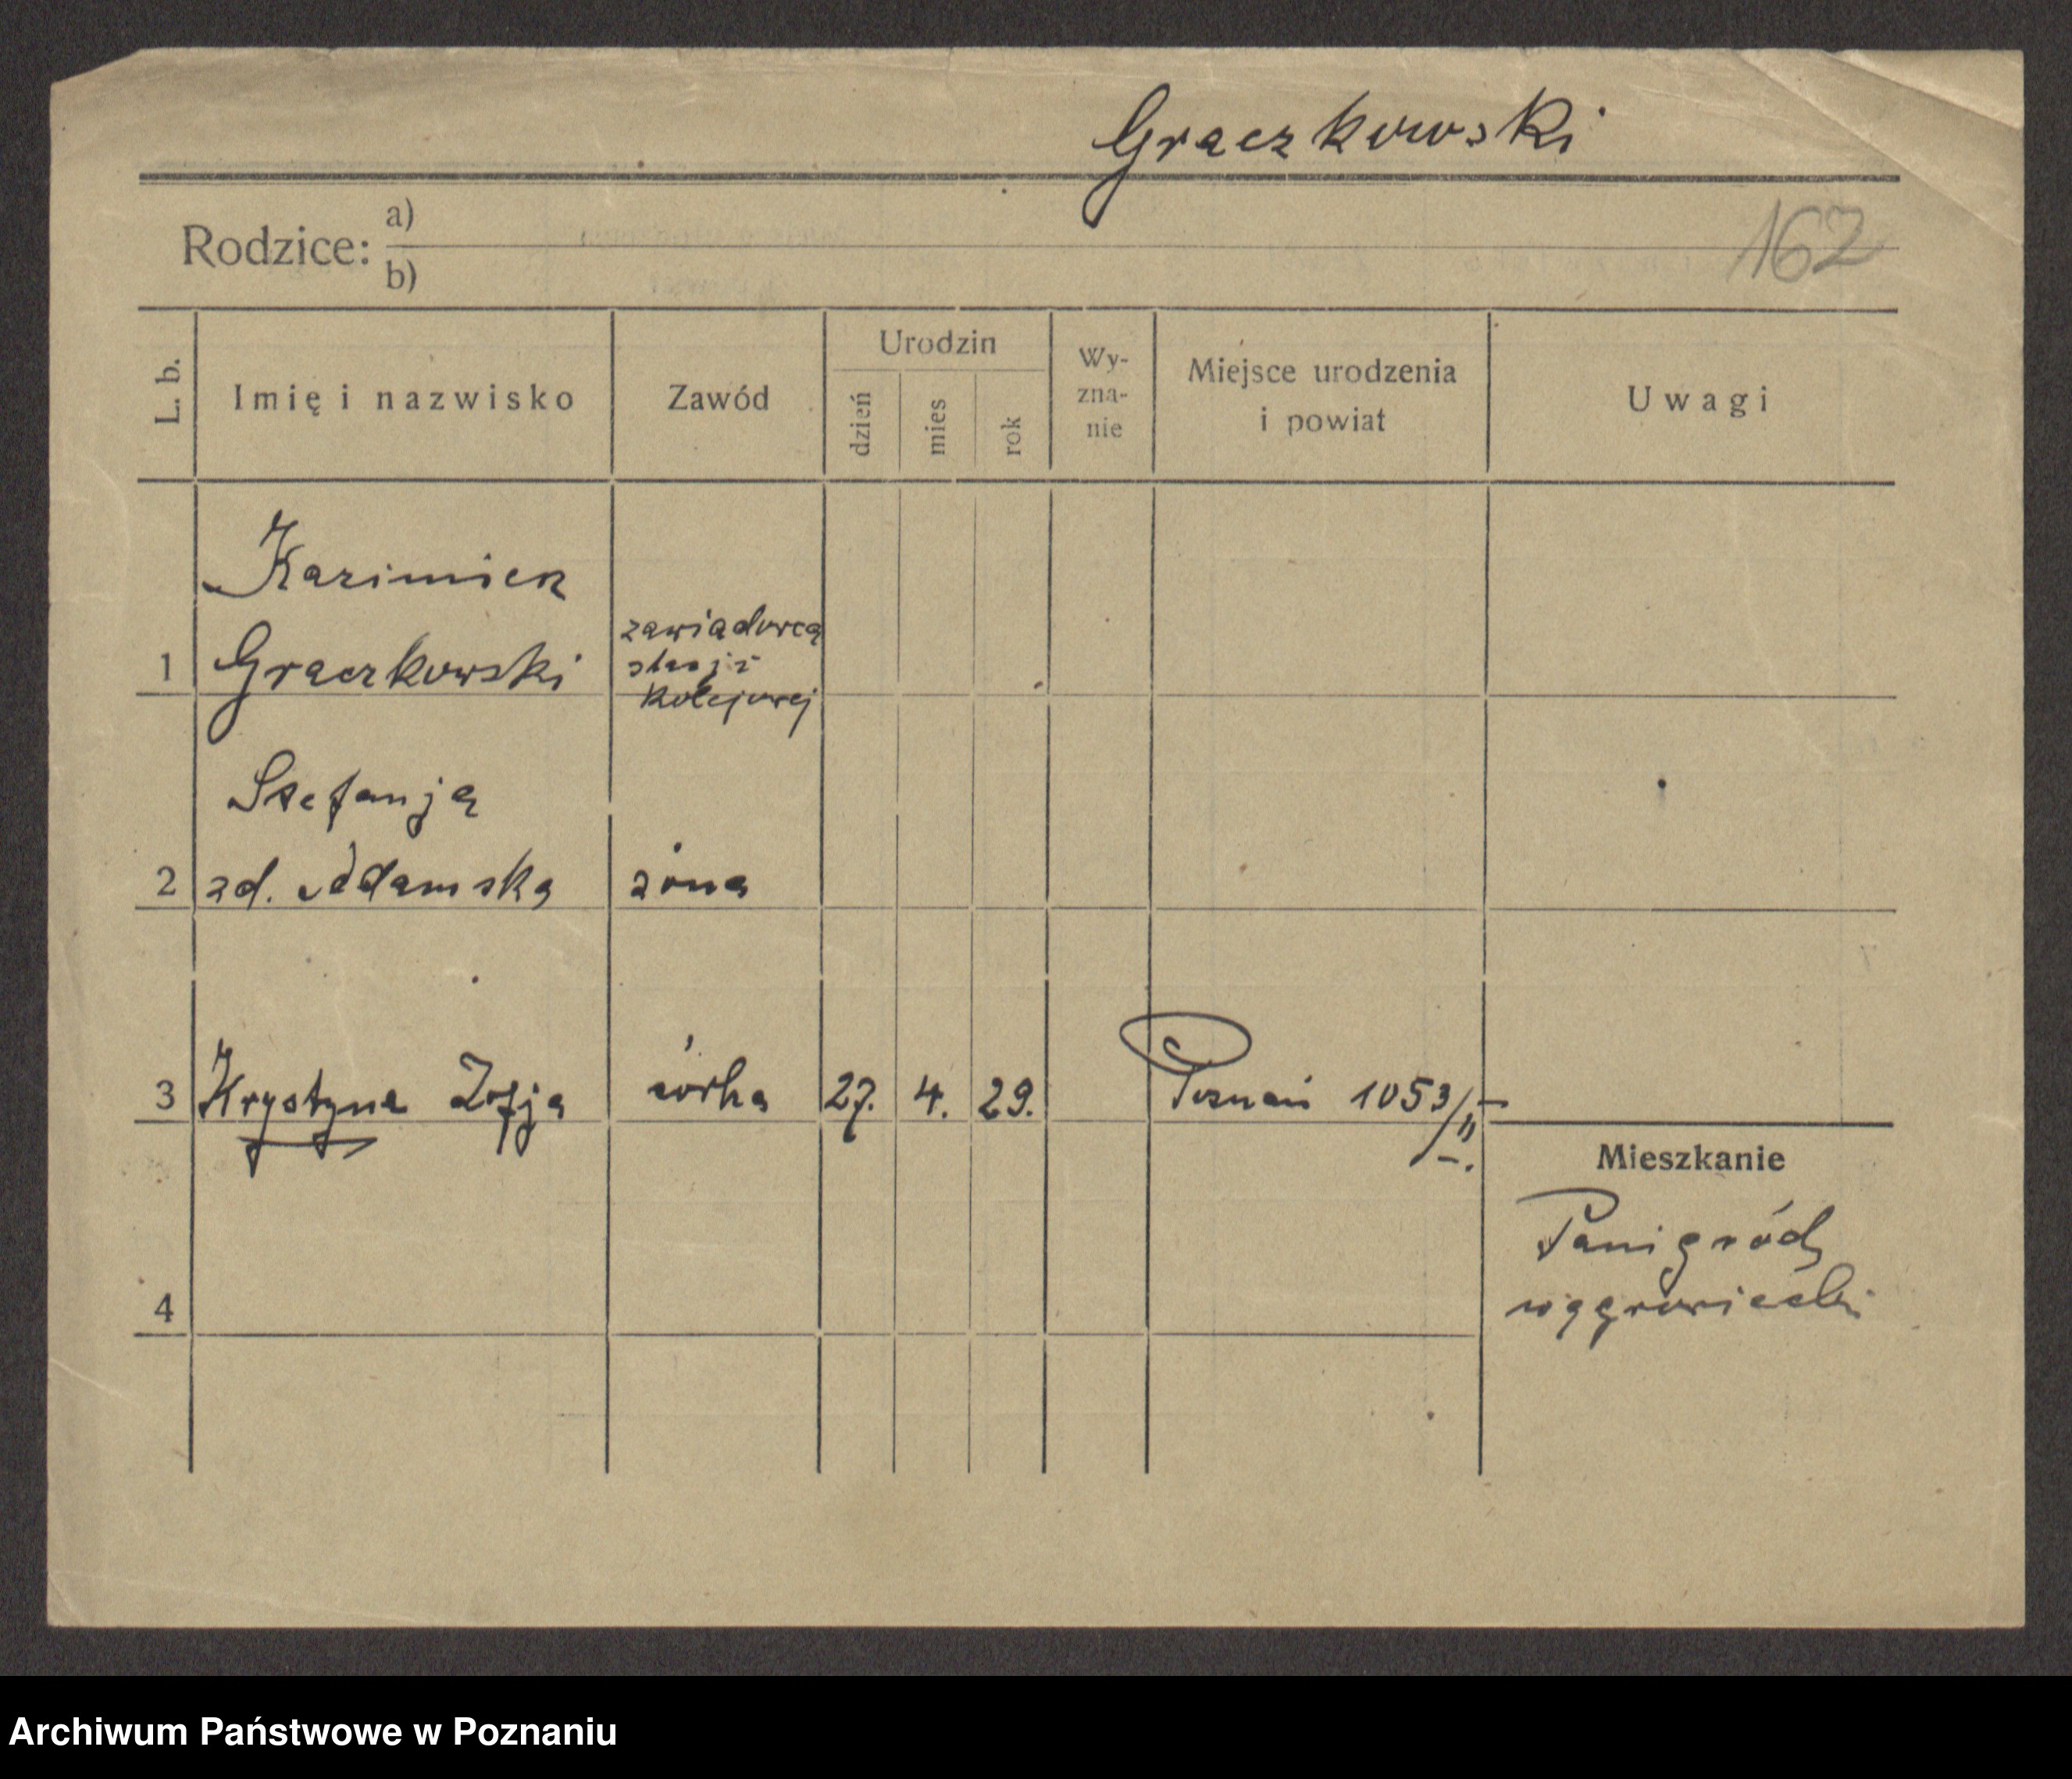 Graczkowski
162
Rodzice: a)
b)
L. b.
Imię i nazwisko
Zawód
Urodzin
dzień
mies
rok
Wy-
zna-
nie
Miejsce urodzenia
i powiat
Uwagi
Kazimierz
1 Graczkowski
zawiadowca
stacji
kolejowej
Stefanja
2 zd. Adamska żona
3 Krystyna Zofja córka 27. 4. 29. Poznań 1053/II
Mieszkanie
Panigródz
wągrowiecki
4
Archiwum Państwowe w Poznaniu